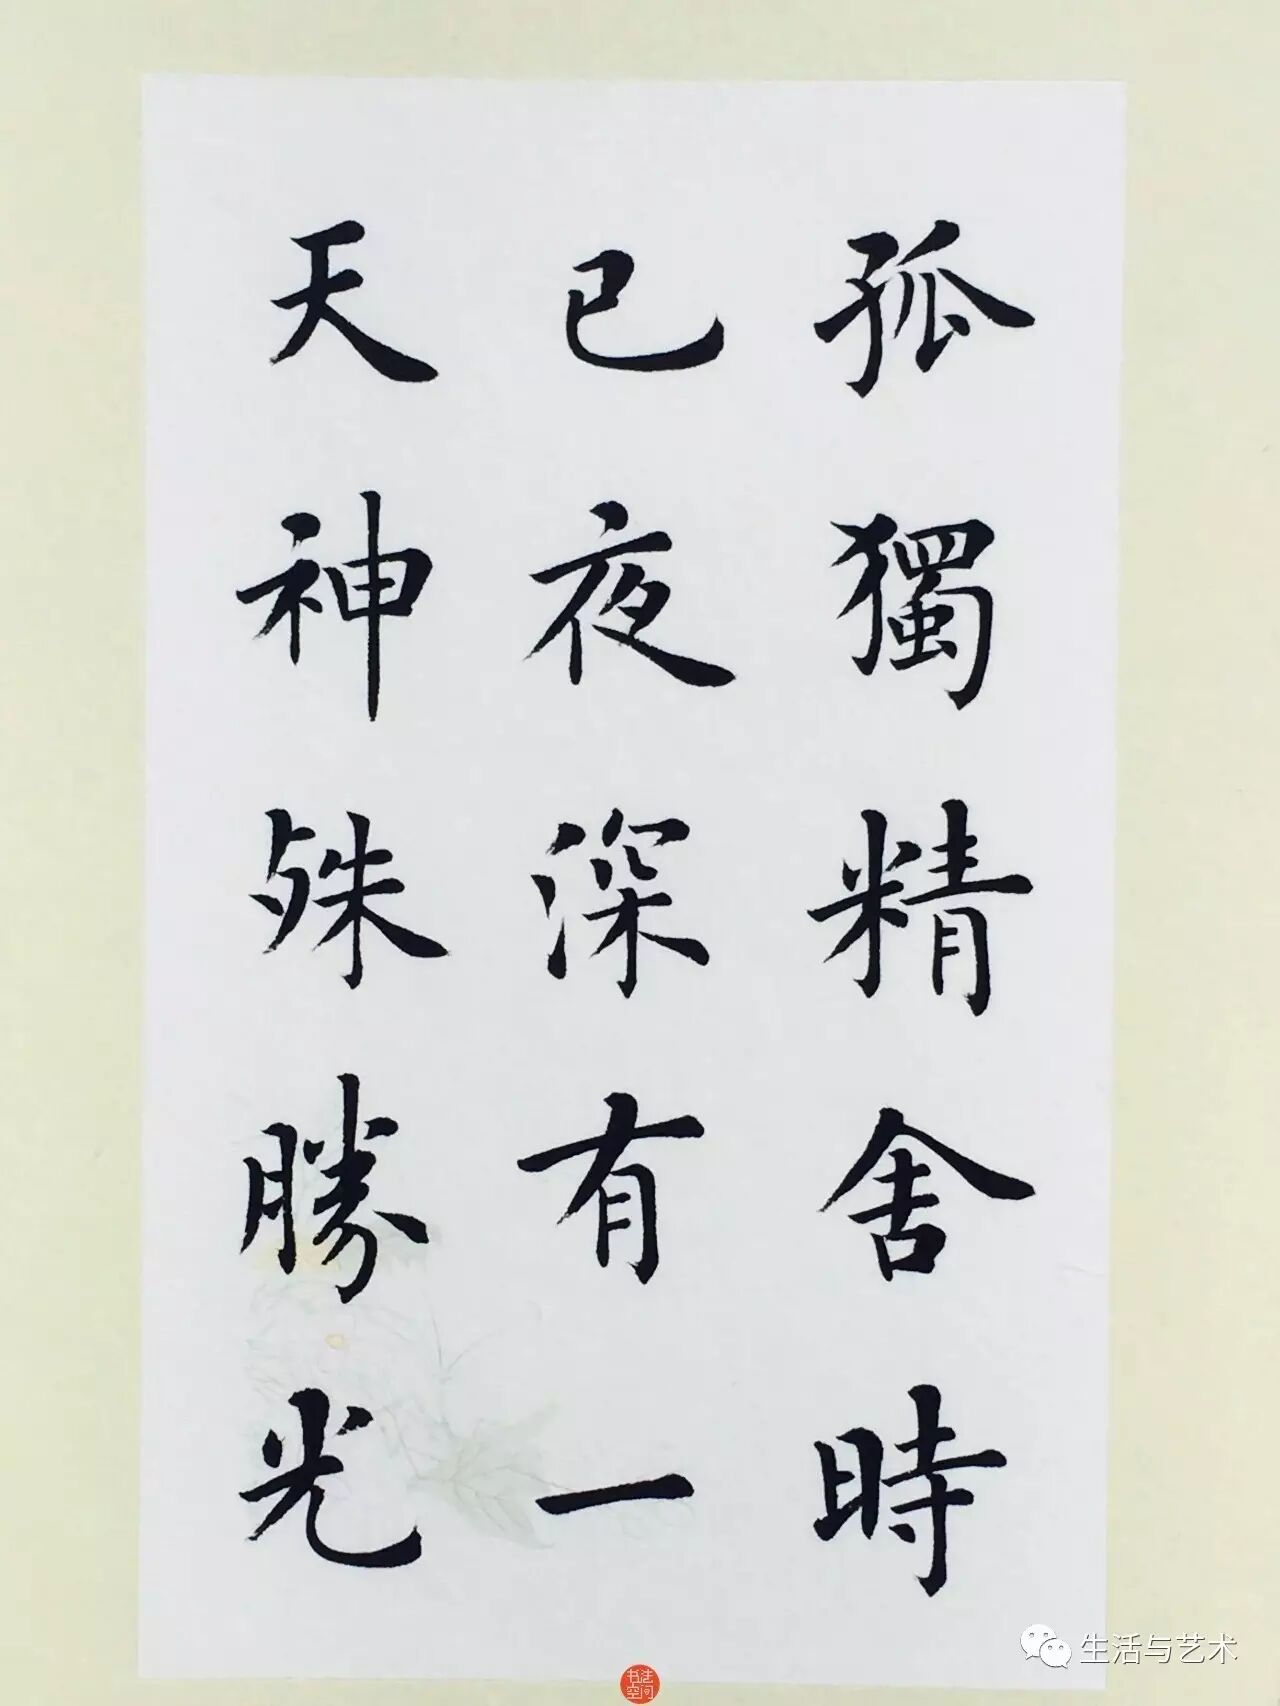 孤獨精舍時
已夜深有一
天神殊勝光
书法空间
生活与艺术